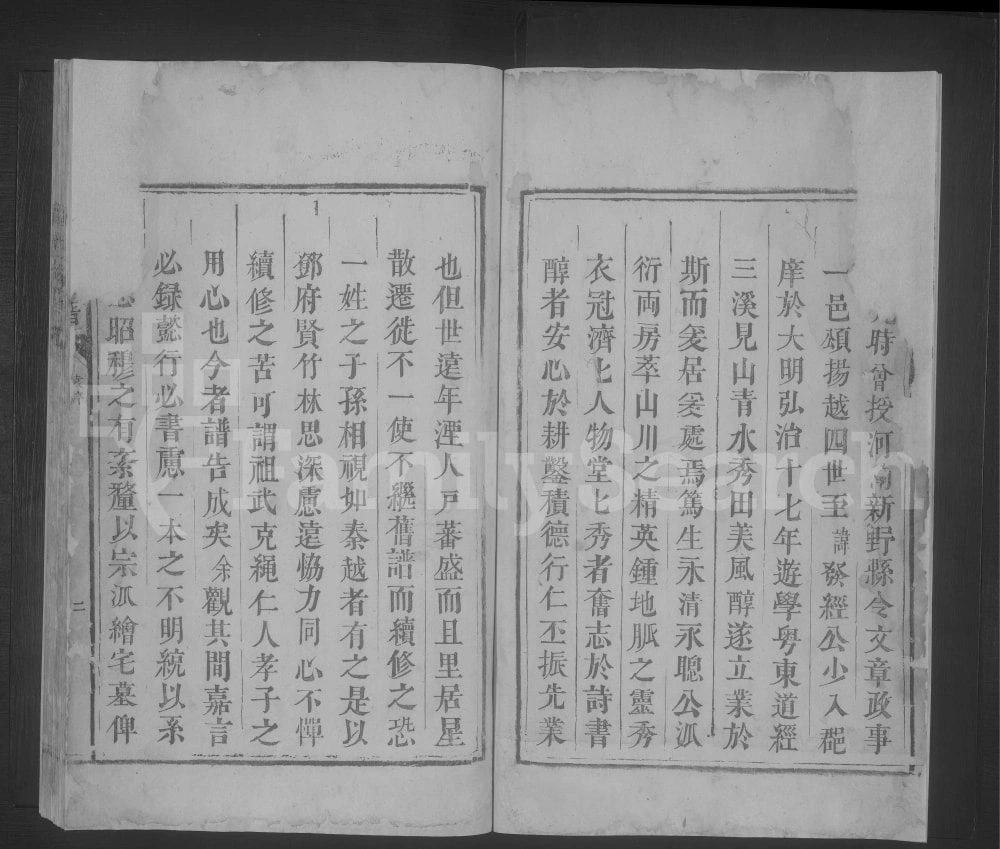 時曾授河南新野縣令文章政事
一邑頌揚越四世至諱發經公少入郡
庠於大明弘治十七年遊學粤東道經
三溪見山青水秀田美風醇遂立業於
斯而爰居爰處焉篤生永清永聰公派
衍両房萃山川之精英鍾地脈之靈秀
衣冠濟匕人物堂匕秀者奮志於詩書
醇者安心於耕鑿積德行仁丕振先業
也但世遠年湮人戸蕃盛而且里居星
散遷徙不一使不繼舊譜而續修之恐
一姓之子孫相視如秦越者有之是以
鄧府賢竹林思深慮遠恊力同心不憚
續修之苦可謂祖武克繩仁人孝子之
用心也今者譜告成矣余觀其間嘉言
必録懿行必書慮一本之不明統以系
昭穆之有紊釐以宗派繪宅墓俾
二
FamilySearch